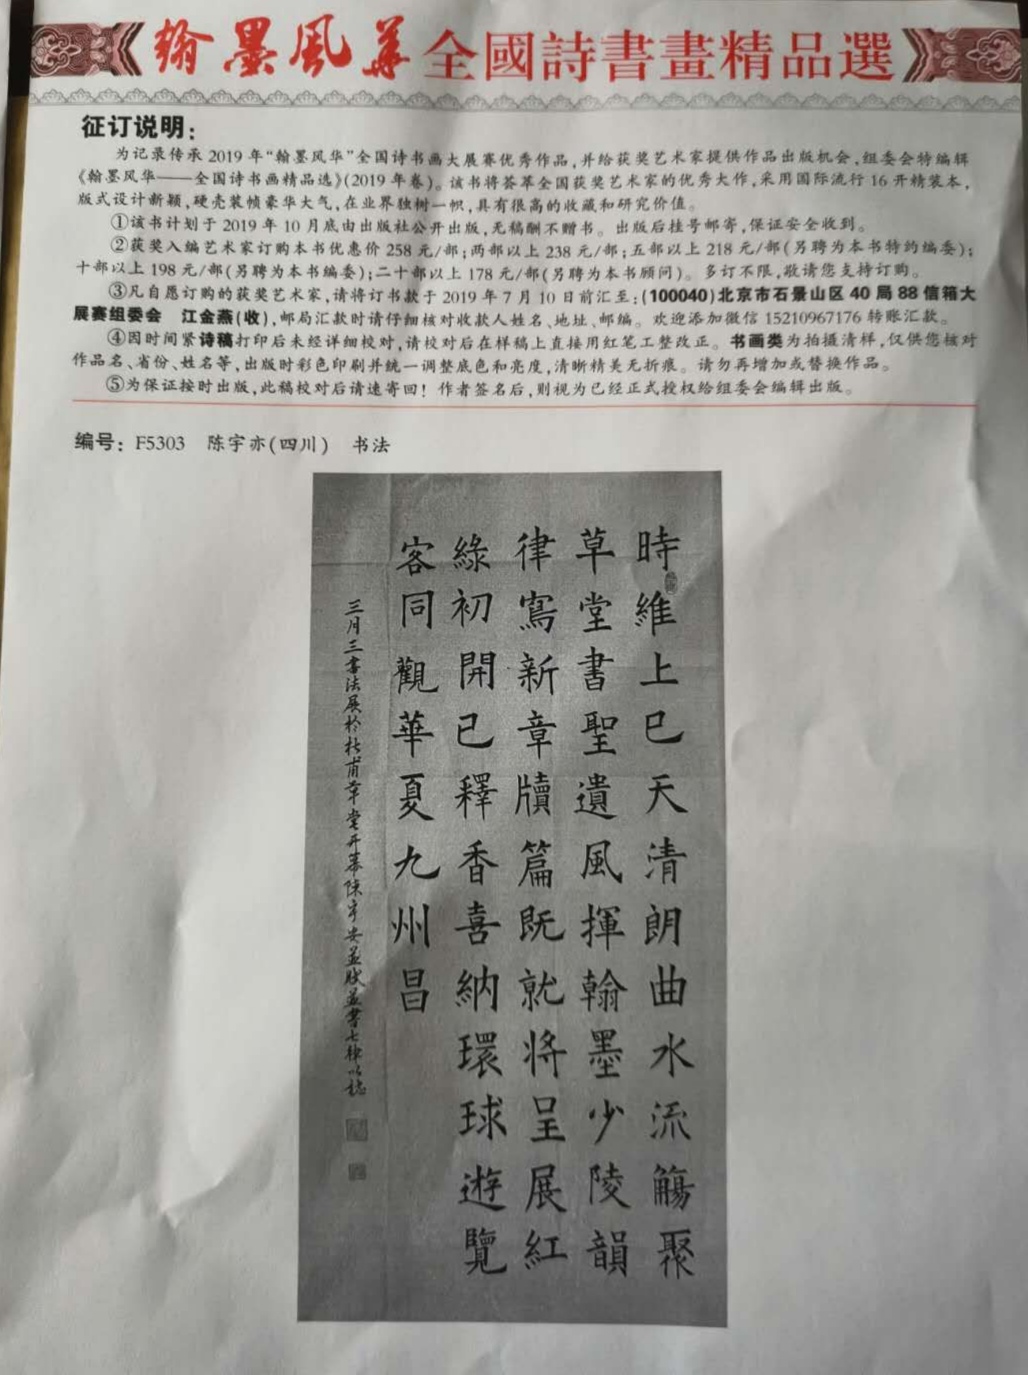 翰墨风华全國詩書畫精品選
征订说明：
为记录传承 2019 年“翰墨风华”全国诗书画大展赛优秀作品，并给获奖艺术家提供作品出版机会，组委会特编辑
《翰墨风华——全国诗书画精品选》(2019 年卷)。该书将荟萃全国获奖艺术家的优秀大作，采用国际流行 16 开精装本，
版式设计新颖，硬壳装帧豪华大气，在业界独树一帜，具有很高的收藏和研究价值。
①该书计划于 2019 年 10 月底由出版社公开出版，无稿酬不赠书。出版后挂号邮寄，保证安全收到。
②获奖入编艺术家订购本书优惠价 258 元/部；两部以上 238 元/部；五部以上 218 元/部(另聘为本书特约编委)；
十部以上 198 元/部(另聘为本书编委)；二十部以上 178 元/部(另聘为本书顾问)。多订不限，敬请您支持订购。
③凡自愿订购的获奖艺术家，请将订书款于 2019 年 7 月 10 日前汇至：(100040)北京市石景山区 40 局 88 信箱大
展赛组委会 江金燕(收)，邮局汇款时请仔细核对收款人姓名、地址、邮编。欢迎添加微信 15210967176 转账汇款。
④因时间紧诗稿打印后未经详细校对，请校对后在样稿上直接用红笔工整改正。书画类为拍摄清样，仅供您核对
作品名、省份、姓名等，出版时彩色印刷并统一调整底色和亮度，清晰精美无折痕。请勿再增加或替换作品。
⑤为保证按时出版，此稿校对后请速寄回！作者签名后，则视为已经正式授权给组委会编辑出版。
编号：F5303 陈宇亦(四川) 书法
時維上巳天清朗曲水流觴聚
草堂書聖遺風揮翰墨少陵韻
律寫新章牘篇既就將呈展紅
綠初開已釋香喜納環球遊覽
客同觀華夏九州昌
三月三書法展於杜甫草堂开幕陳宇亦並賦並書七律以誌